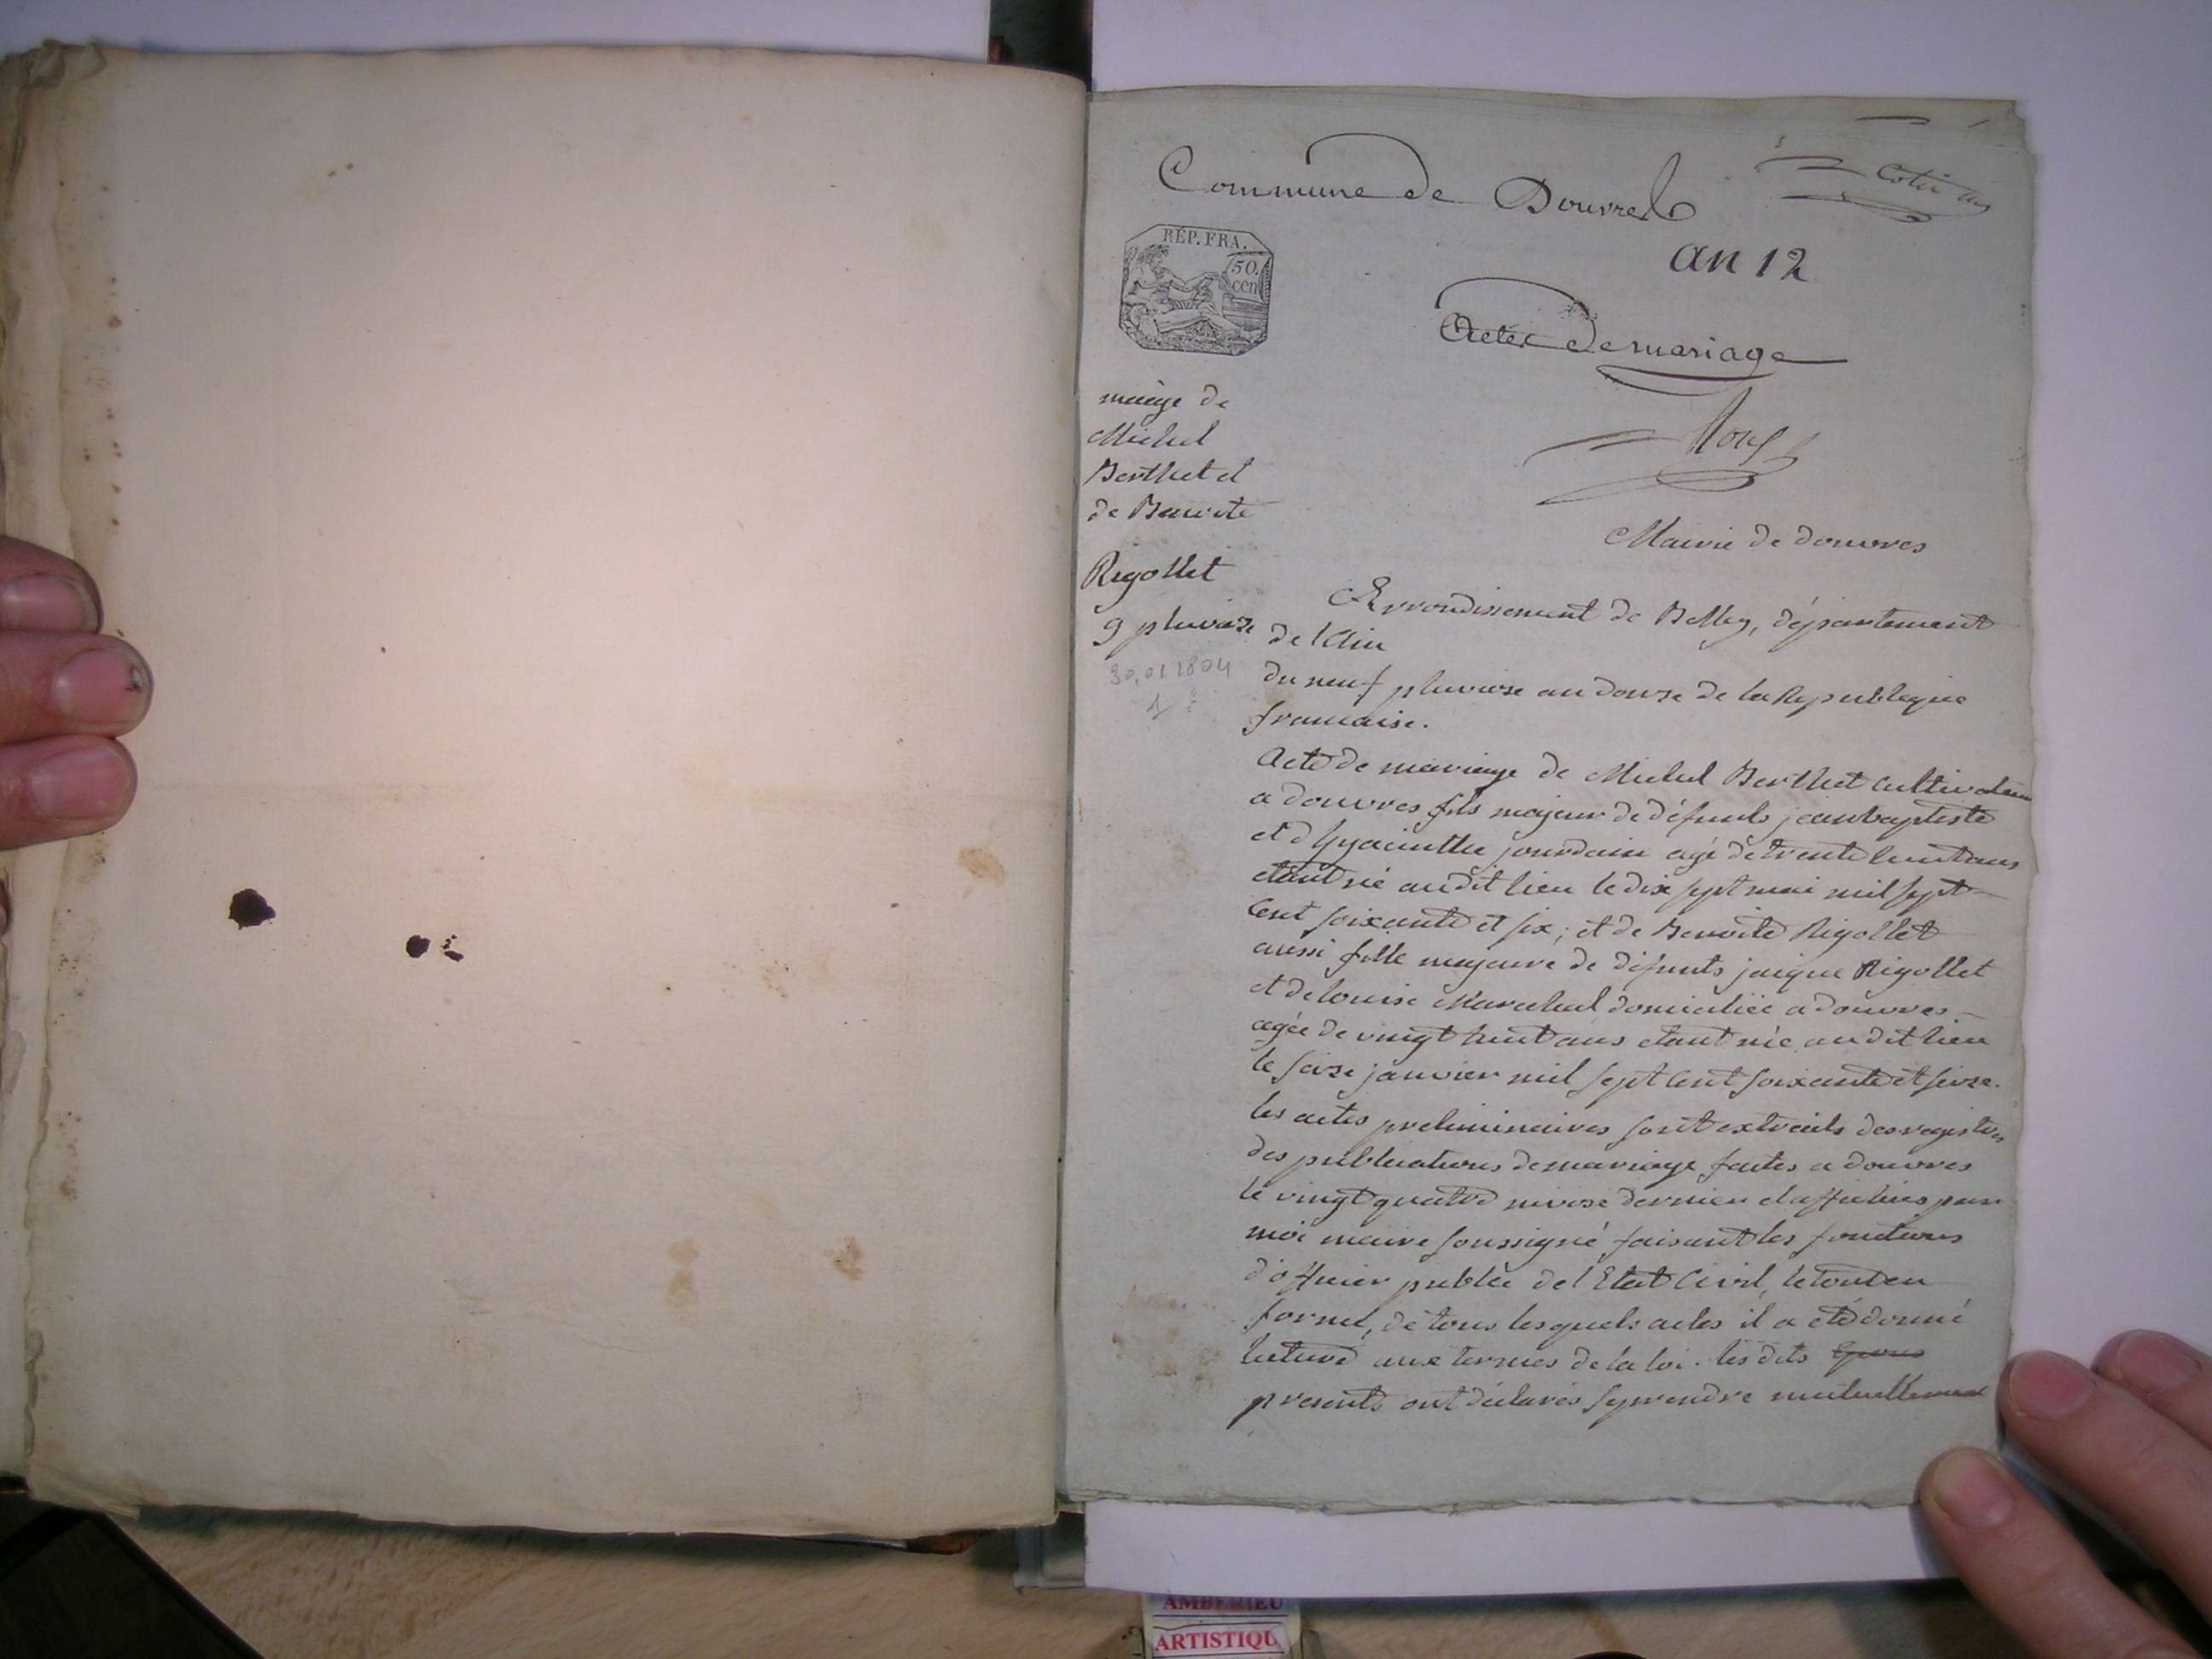 Commune de Douvres
Cotté
an 12
RÉP. FRA.
50.
cen
Actes de mariage
mariage de
Michel
Berthet et
de Benoite
Rigollet
9 pluviose
30.01 1804
1
Mairie de douvres
Arrondissement de Belley, département
de l'Ain
du neuf pluviose an douze de la Republique
francaise.
Acte de mariage de Michel Berthet cultivateur
a douvres fils majeur de défunts jean baptiste
et d'hyacinthe jourdain agé de trente huit ans
etant né au dit lieu le dix sept mai mil sept
cent soixante et six; et de Benoite Rigollet
aussi fille majeure de défunts jaique Rigollet
et de louise Marechal domiciliée a douvres
agée de vingt huit ans etant née au dit lieu
le seize janvier mil sept cent soixante et seize.
les actes preliminaires sont extraits des registres
des publications de mariage faites a douvres
le vingt quatre nivose dernier et affichées par
moi maire soussigné faisant les fonctions
d'officier public de l'Etat Civil, le tout en
forme, de tous lesquels actes il a été donné
lecture aux termes de la loi. les dits Epoux
presents ont déclarés se prendre mutuellement
AMBERIEU
ARTISTIQU